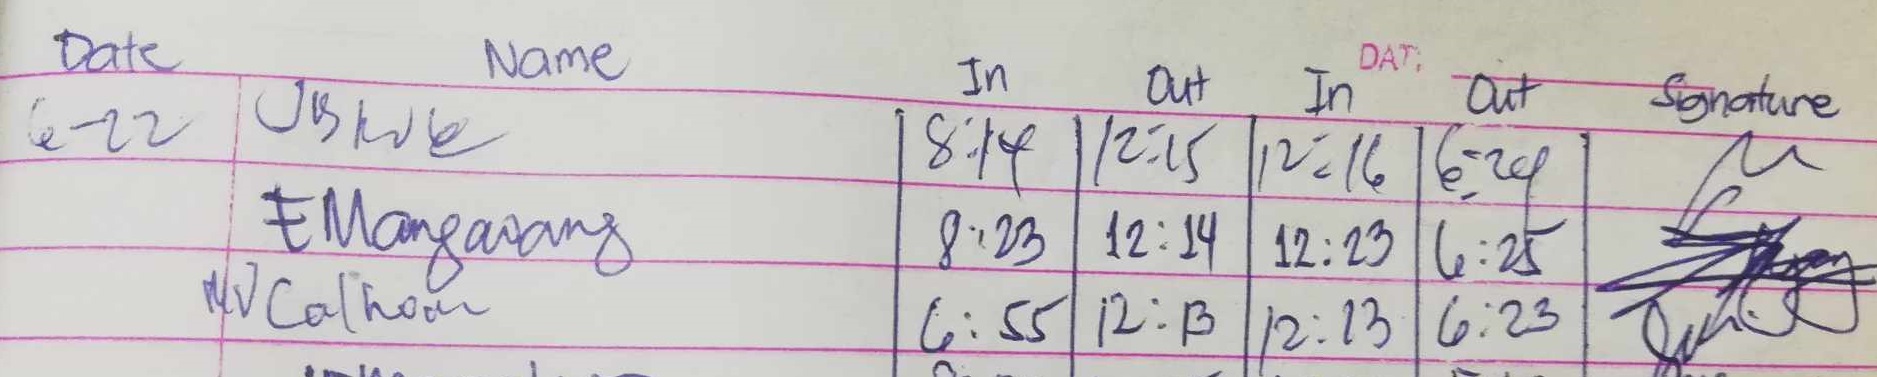 Date Name In Out In Out Signature
DAT:
6-22 8:14 12:15 12:16 6:24
E Mangarang 8:23 12:14 12:23 6:25
NV Calhoun 6:55 12:13 12:13 6:23